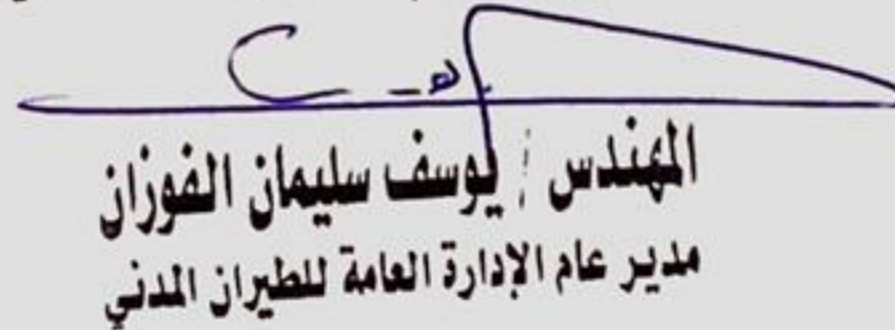 المهندس / يوسف سليمان الفوزان
مدير عام الإدارة العامة للطيران المدني